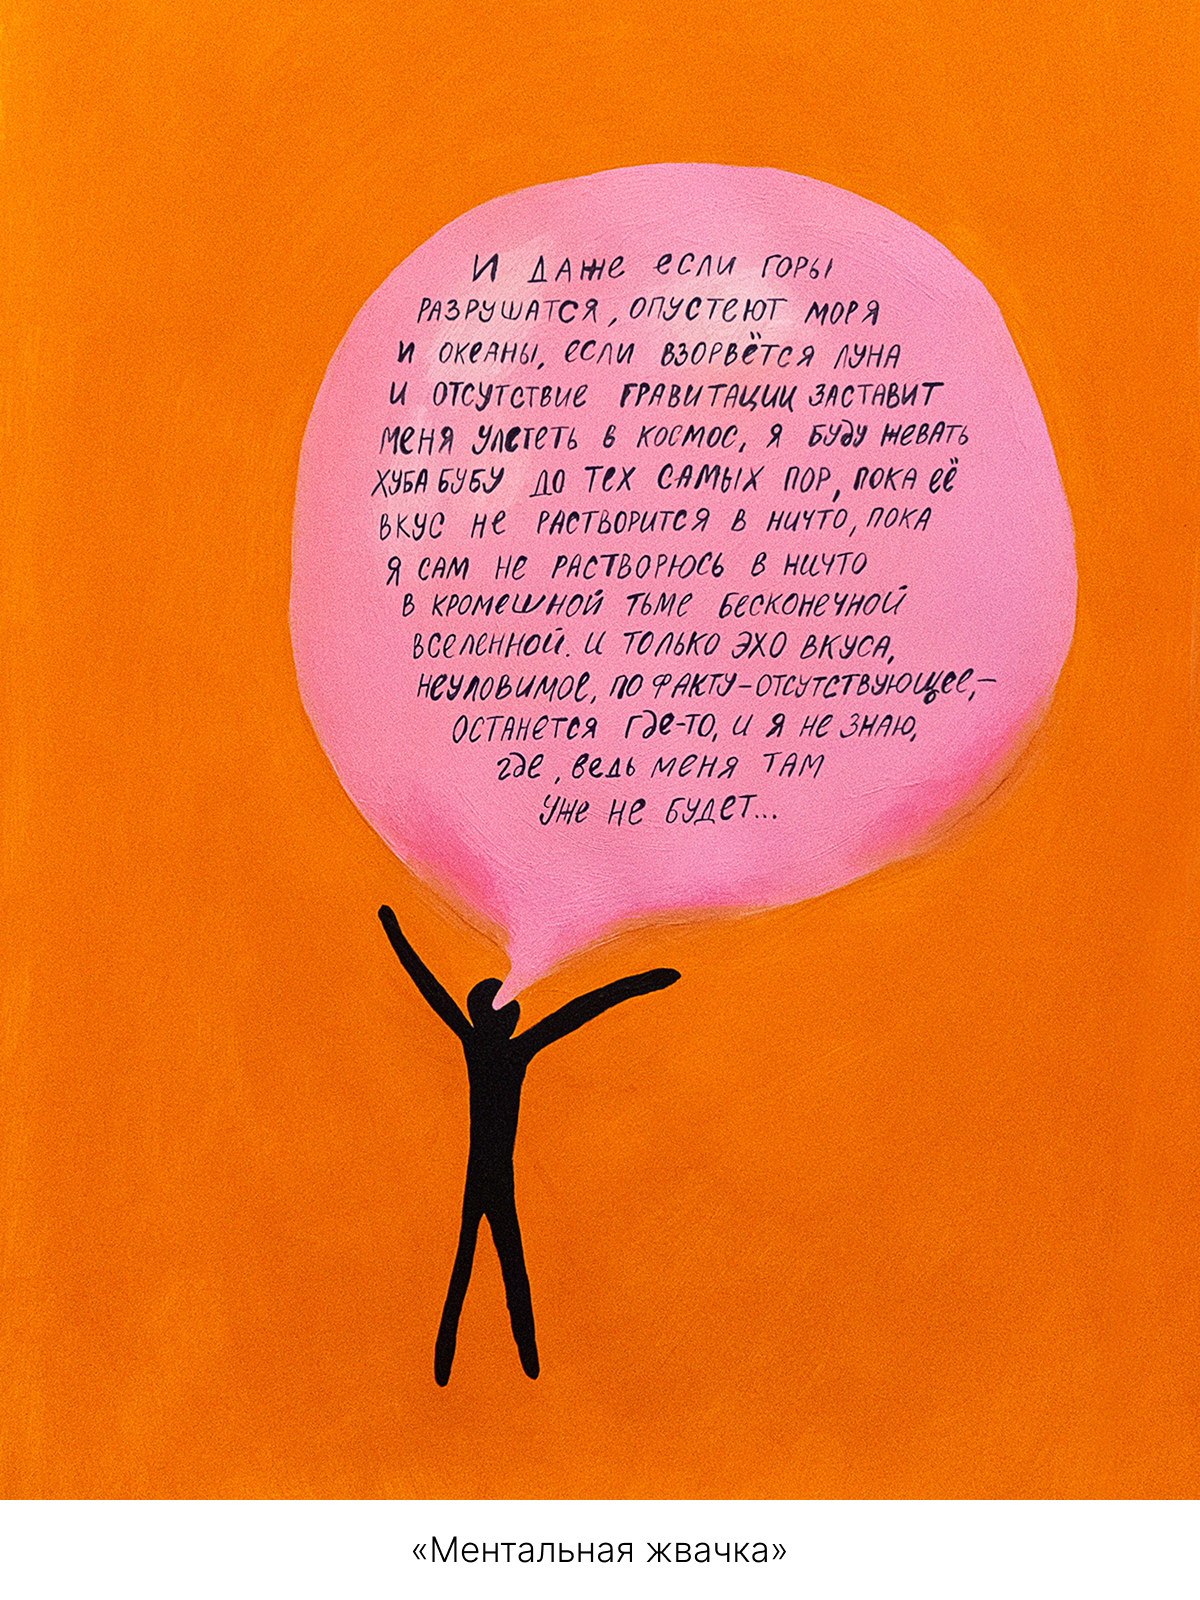 И ДАЖЕ ЕСЛИ ГОРЫ
РАЗРУШАТСЯ, ОПУСТЕЮТ МОРЯ
И ОКЕАНЫ, ЕСЛИ ВЗОРВЁТСЯ ЛУНА
И ОТСУТСТВИЕ ГРАВИТАЦИИ ЗАСТАВИТ
МЕНЯ УЛЕТЕТЬ В КОСМОС, Я БУДУ ЖЕВАТЬ
ХУБА БУБУ ДО ТЕХ САМЫХ ПОР, ПОКА ЕЁ
ВКУС НЕ РАСТВОРИТСЯ В НИЧТО, ПОКА
Я САМ НЕ РАСТВОРЮСЬ В НИЧТО
В КРОМЕШНОЙ ТЬМЕ БЕСКОНЕЧНОЙ
ВСЕЛЕННОЙ. И ТОЛЬКО ЭХО ВКУСА,
НЕУЛОВИМОЕ, ПО ФАКТУ-ОТСУТСТВУЮЩЕЕ,–
ОСТАНЕТСЯ ГДЕ-ТО, И Я НЕ ЗНАЮ,
ГДЕ, ВЕДЬ МЕНЯ ТАМ
УЖЕ НЕ БУДЕТ...
«Ментальная жвачка»